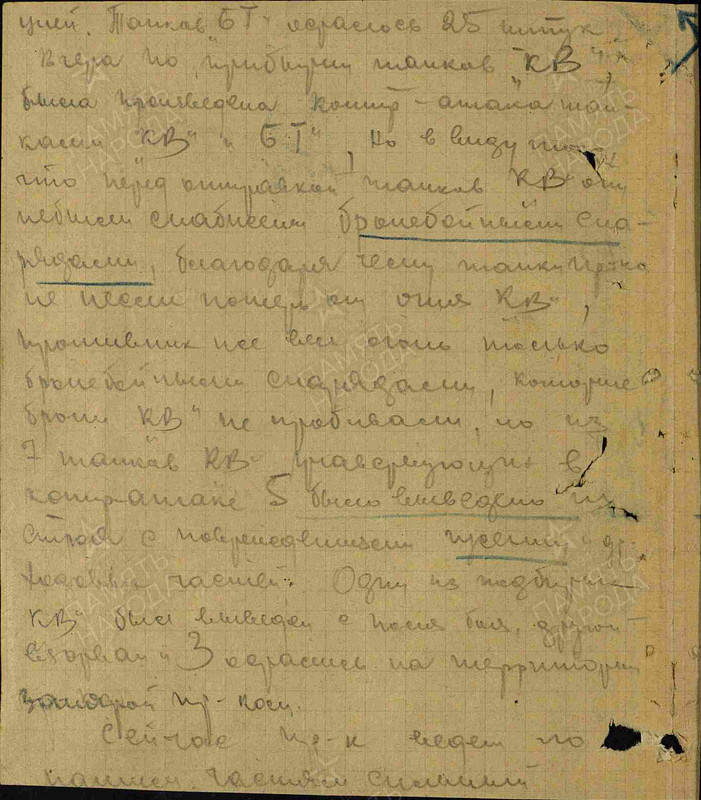 цией. Танков БТ осталось 25 штук
Вчера по прибытии танков "КВ",
была произведена контр-атака тан-
ками "КВ" и "БТ", но в виду того
что перед отправкой танков "КВ" они
небыли снабжены бронебойными сна-
рядами, благодаря чему танки пр-ка
не несли потерь от огня "КВ",
противник же вел огонь только
бронебойными снарядами, которые
брони "КВ" не пробивали, но из
7 танков "КВ" участвующих в
контратаке 5 было выведено из
строя с повреждениями гусениц и др.
ходовых частей. Один из подбитых
"КВ" был выведен с поля боя, другой
взорван и 3 остались на территории
занятой пр-ком.
Сейчас пр-к ведет по
нашим частям сильный